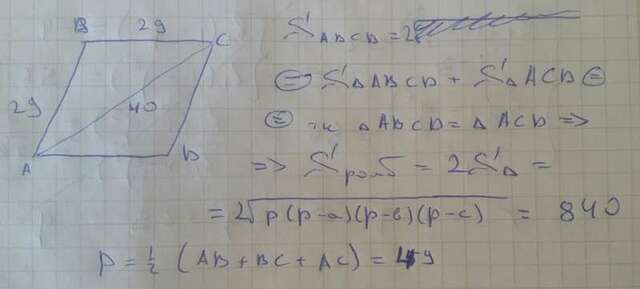 B 29 C
29
40
A D
S ABCD = 2
= S ΔABCD + S ΔACD =
= т.к ΔABCD = ΔACD =>
=> S ромб = 2SΔ =
= 2√p(p-a)(p-в)(p-c) = 840
p = 1/2 (AB + BC + AC) = 49